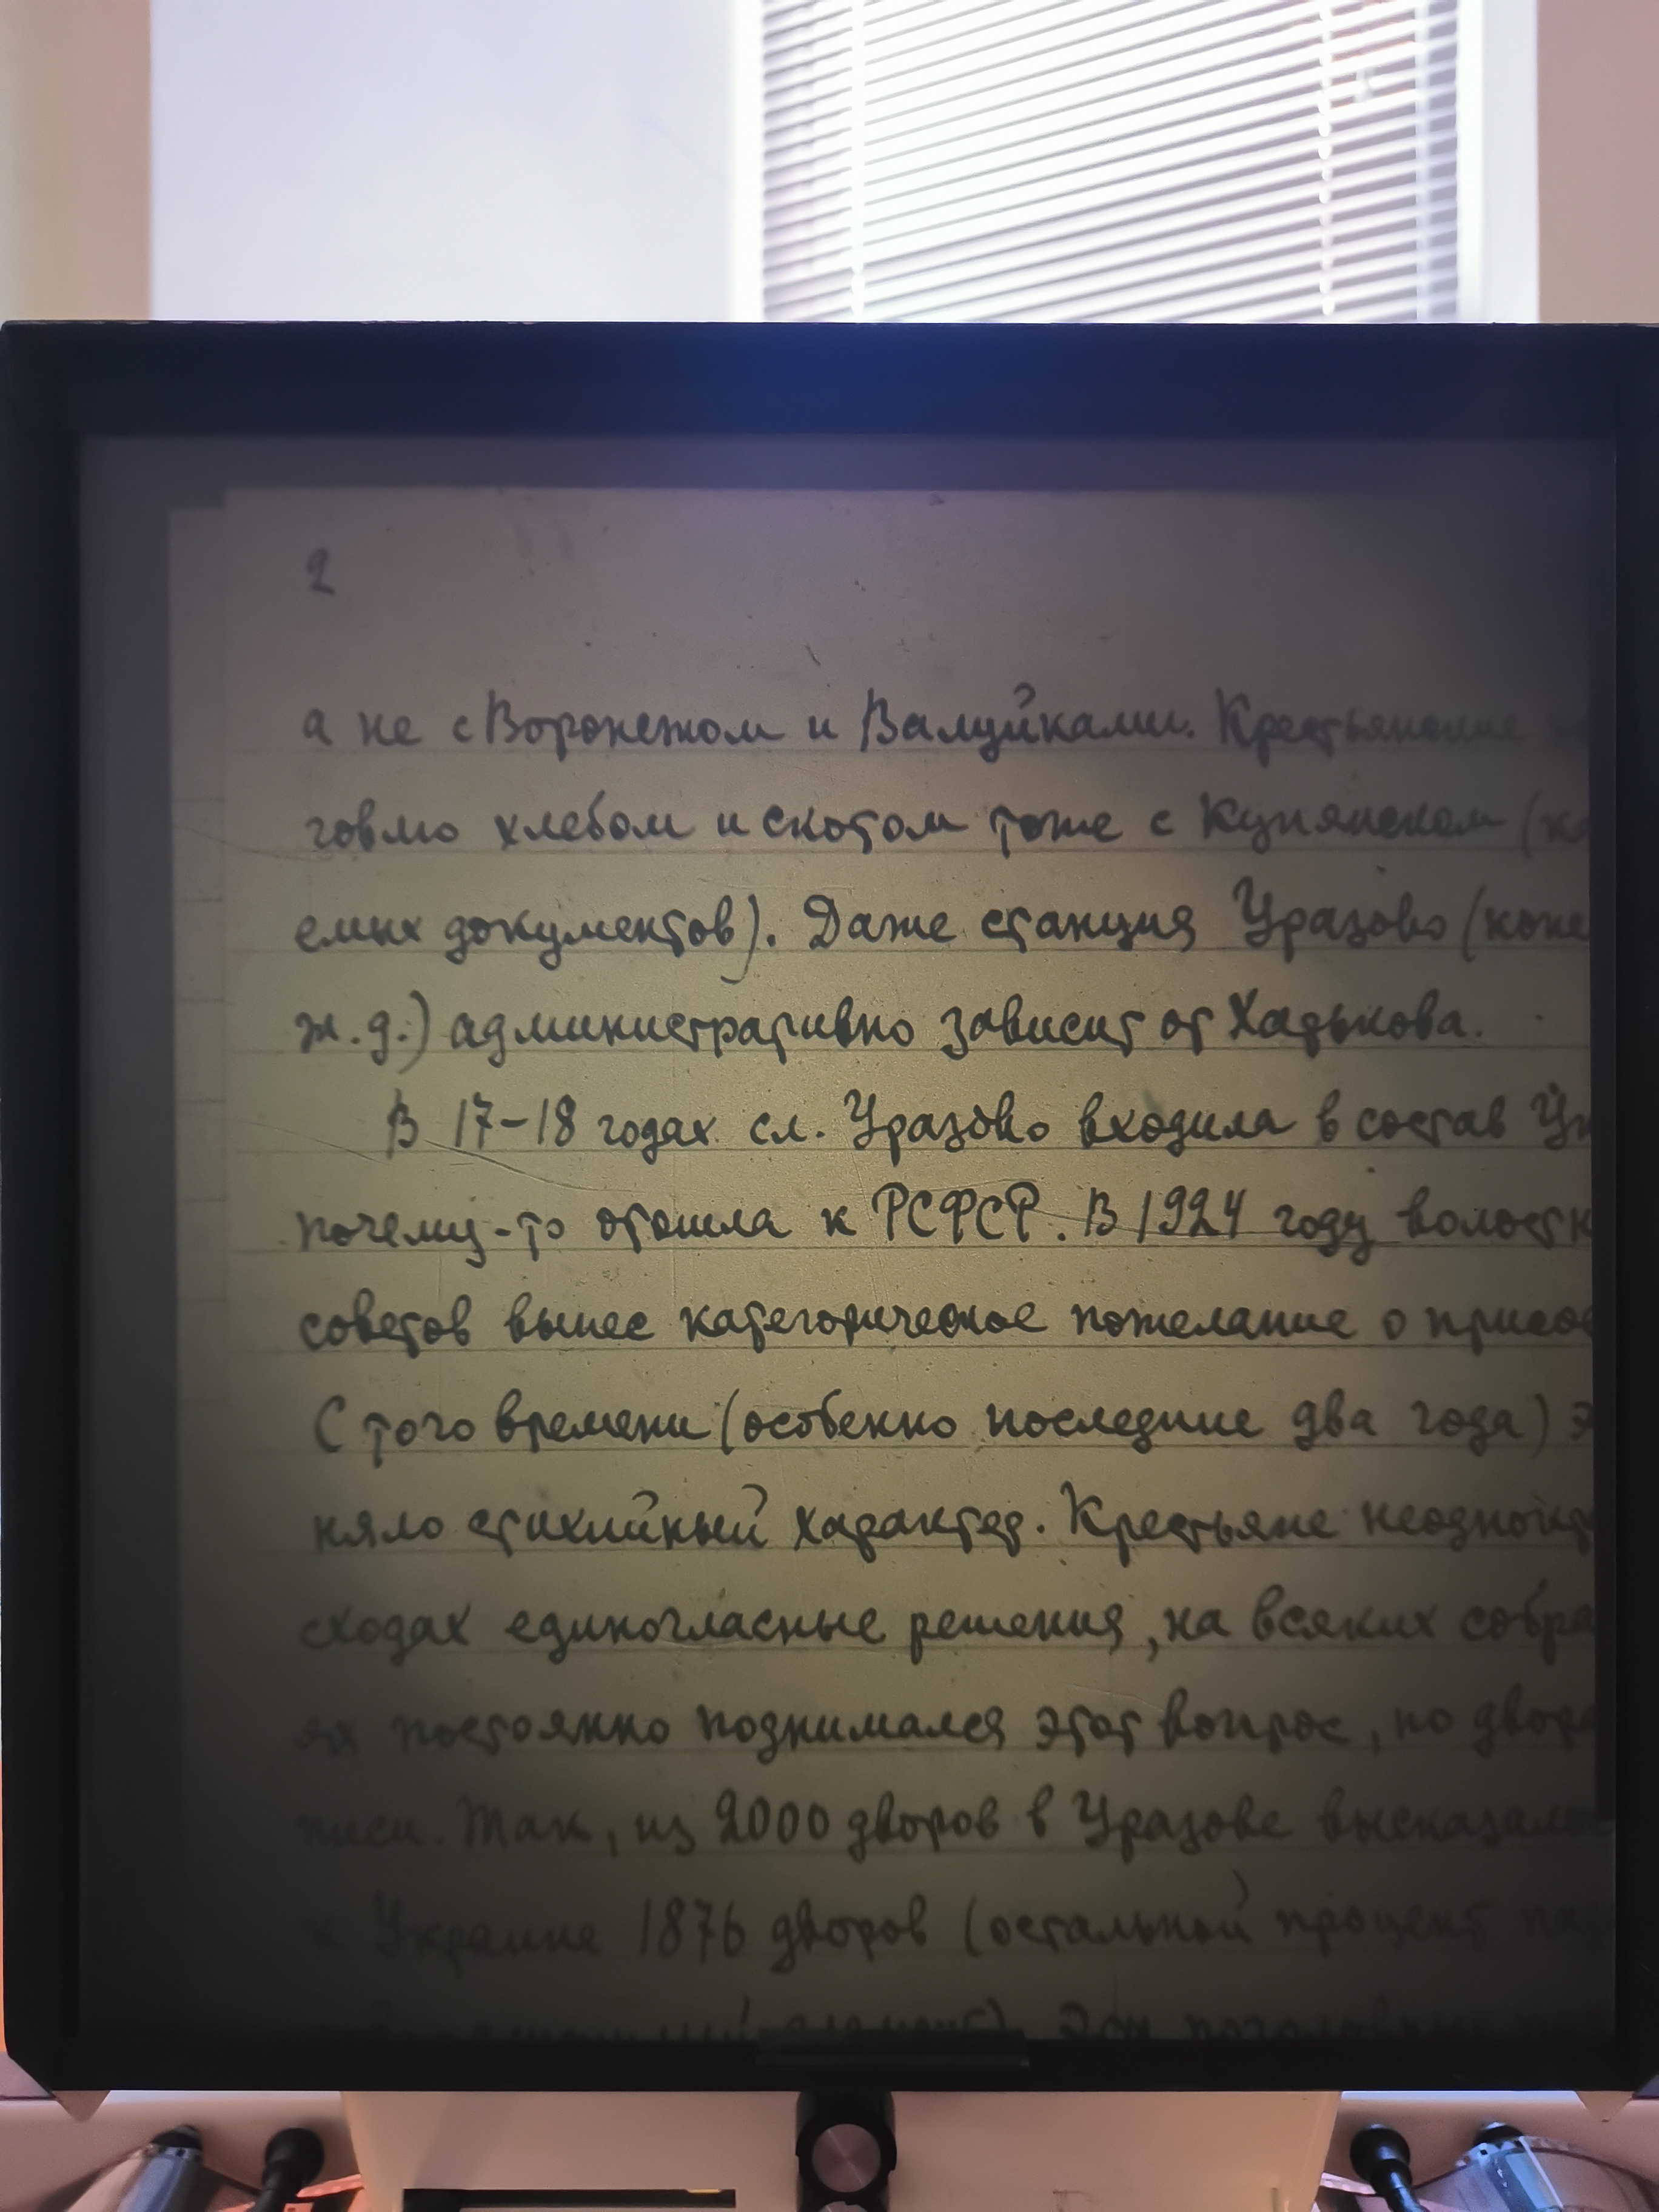 2
а не с Воронежом и Валуйками. Крестьянские
говлю хлебом и скотом тоже с Купянском (ко
емых документов). Даже станция Уразово (коне
ж.д.) административно зависит от Харькова.
В 17-18 годах сл. Уразово входила в состав Ук
почему-то отошла к РСФСР. В 1924 году волостн
советов вынес категорическое пожелание о присое
С того времени (особенно последние два года) э
няло стихийный характер. Крестьяне неоднокр
сходах единогласные решения, на всяких собра
ях постоянно поднимался этот вопрос, по двора
писи. Так, из 2000 дворов в Уразове высказалос
к Украине 1876 дворов (остальной процент пад
элемент). Эти поголовные